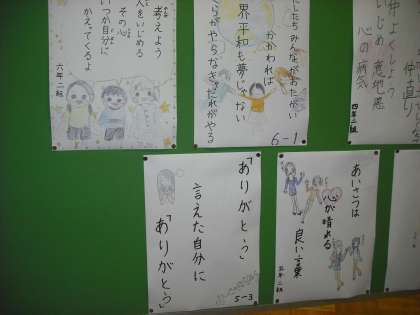 考えよう
人をいじめる
その心
いつか自分に
かえってくるよ
六年二組
したちみんながおたがい
かかわれば
界平和も夢じゃない
らがやらなきゃだれがやる
6-1
仲よくしよう
仲直り
いじめ 意地悪
心の病気
四年二組
「ありがとう」
言えた自分に
「ありがとう」
5-3
あいさつは
心が晴れる
良い言葉
五年二組